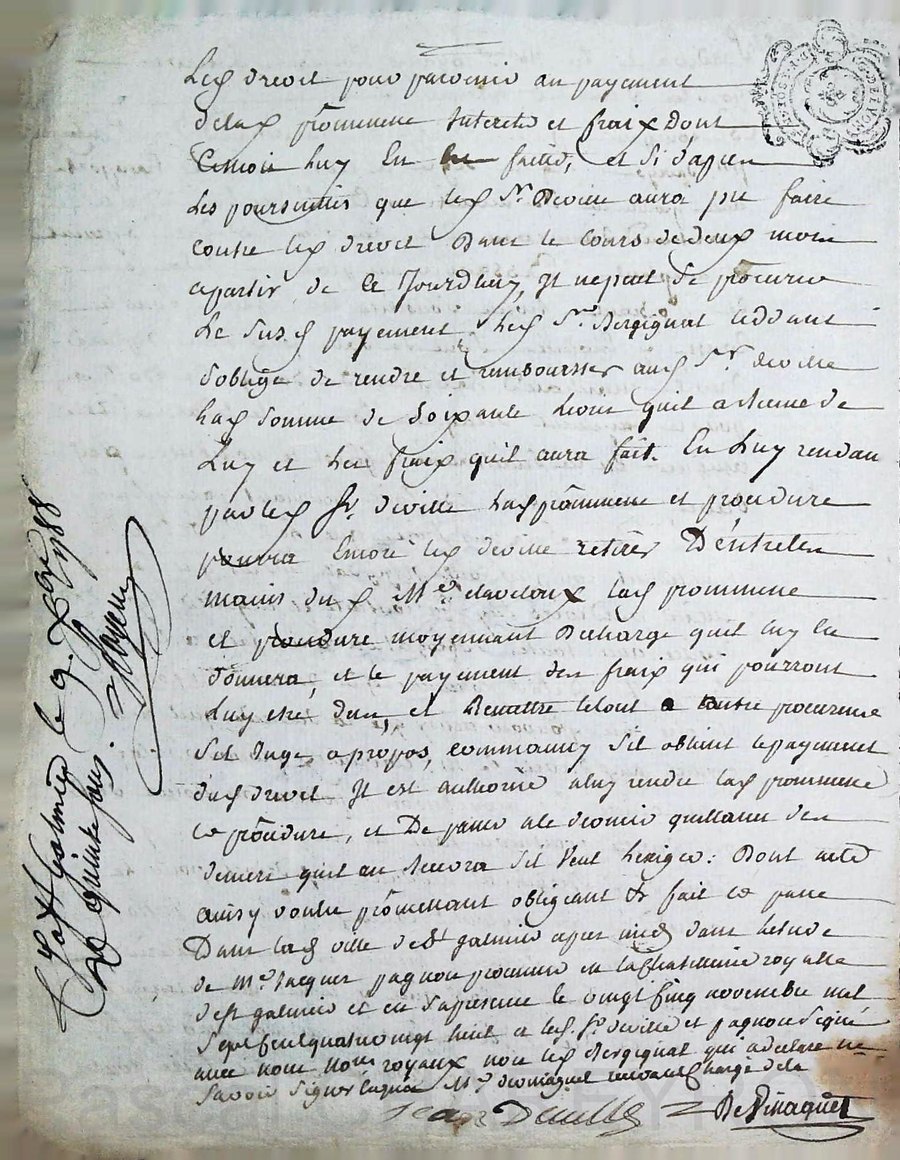 Led. drevet pour parvenir au payement
de lad. promesse Interets et fraix dont
Cession luy En faitte, et si d'apres
Les poursuittes que led. Sr. Deville aura pu faire
contre led. drevet Dans le cours de deux mois
a partir de Ce Jourdhuy, Il ne peut se procurer
Le susd. payement led. Sr. Bergignat cedant
s'oblige de rendre et rembourser aud. Sr. deville
Lad. somme de Soixante Livres qu'il a recue de
Luy et les fraix quil aura fait. En Luy rendan
par led. Sr. deville Lad. promesse et procedure
pourra Encore led. deville retirer D'entre les
mains dud. Me. lad. promesse
et procedure moyennant Decharge quil luy En
donnera, et le payement des fraix qui pourront
Luy etre dus, et Remettre le tout a autre procureur
sil Juge apropos, comm'aussy sil obtient le payement
dud. drevet Il est authorisé a luy rendre lad. promesse
et procedure, et De passer quittance des
deniers quil en recevra sil veut l'exiger: Dont acte
ainsy voulu promettant obligeant &c fait et passé
Dans lad. ville de St galmier apres midy dans letude
de Me. Jacques pagnon procureur en la Chatellenie royalle
de St galmier et en sa presence le vingt cinq novembre mil
sept cent quatre vingt huit et led. Sr. deville et pagnon signé
avec nous Nores royaux non led. Bergignat qui a declaré ne
Savoir signer Me. chargé de la
Jean Deville De Vinaguet
St Galmier le 9. Xbre 1788
Re quinze sous.